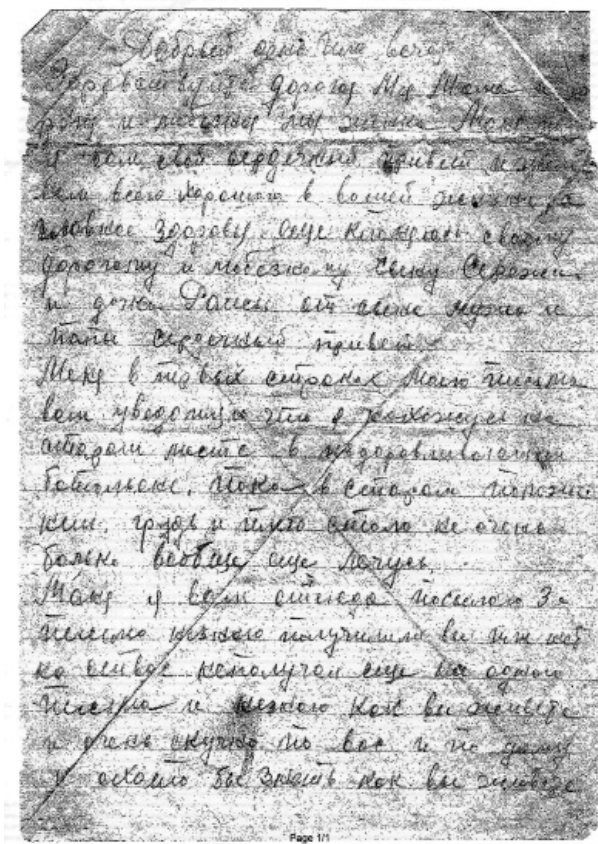 Добрый день или вечер
Здравствуйте дорогая Моя
и любезная моя жена
я вам свой сердечный привет и
вам всего хорошого в вашей жизни а
главное здорову. еще кланяюсь своему
дорогому и любезному сыну Сережи
и дочки Раисы от свое мужа и
папы сердечный привет
в первых строках моего письма
вам уведомляю что я нахожусь на
старом месте в
батальоне. пока в старом положе
нии. грудь и стало не очень
больно вообще еще лечусь.
я вам отсюда посылаю 3е
письмо незнаю получили ли вы их
от вас неполучал еще не одного
письма и незнаю как вы живете
и очень скучно по вас и по дому
и охото бы знать как вы живете
Page 1/1